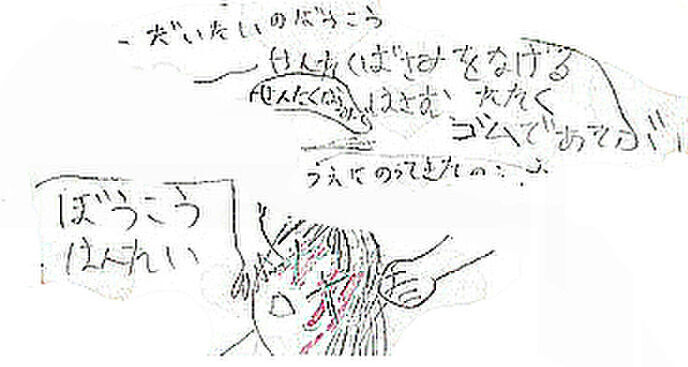 だいたいのぼうこう
せんたくばさみをなげる
せんたくばさみで はさむ たたく
ゴムであそぶ
うえにのってきたの
ぼうこう
はんたい